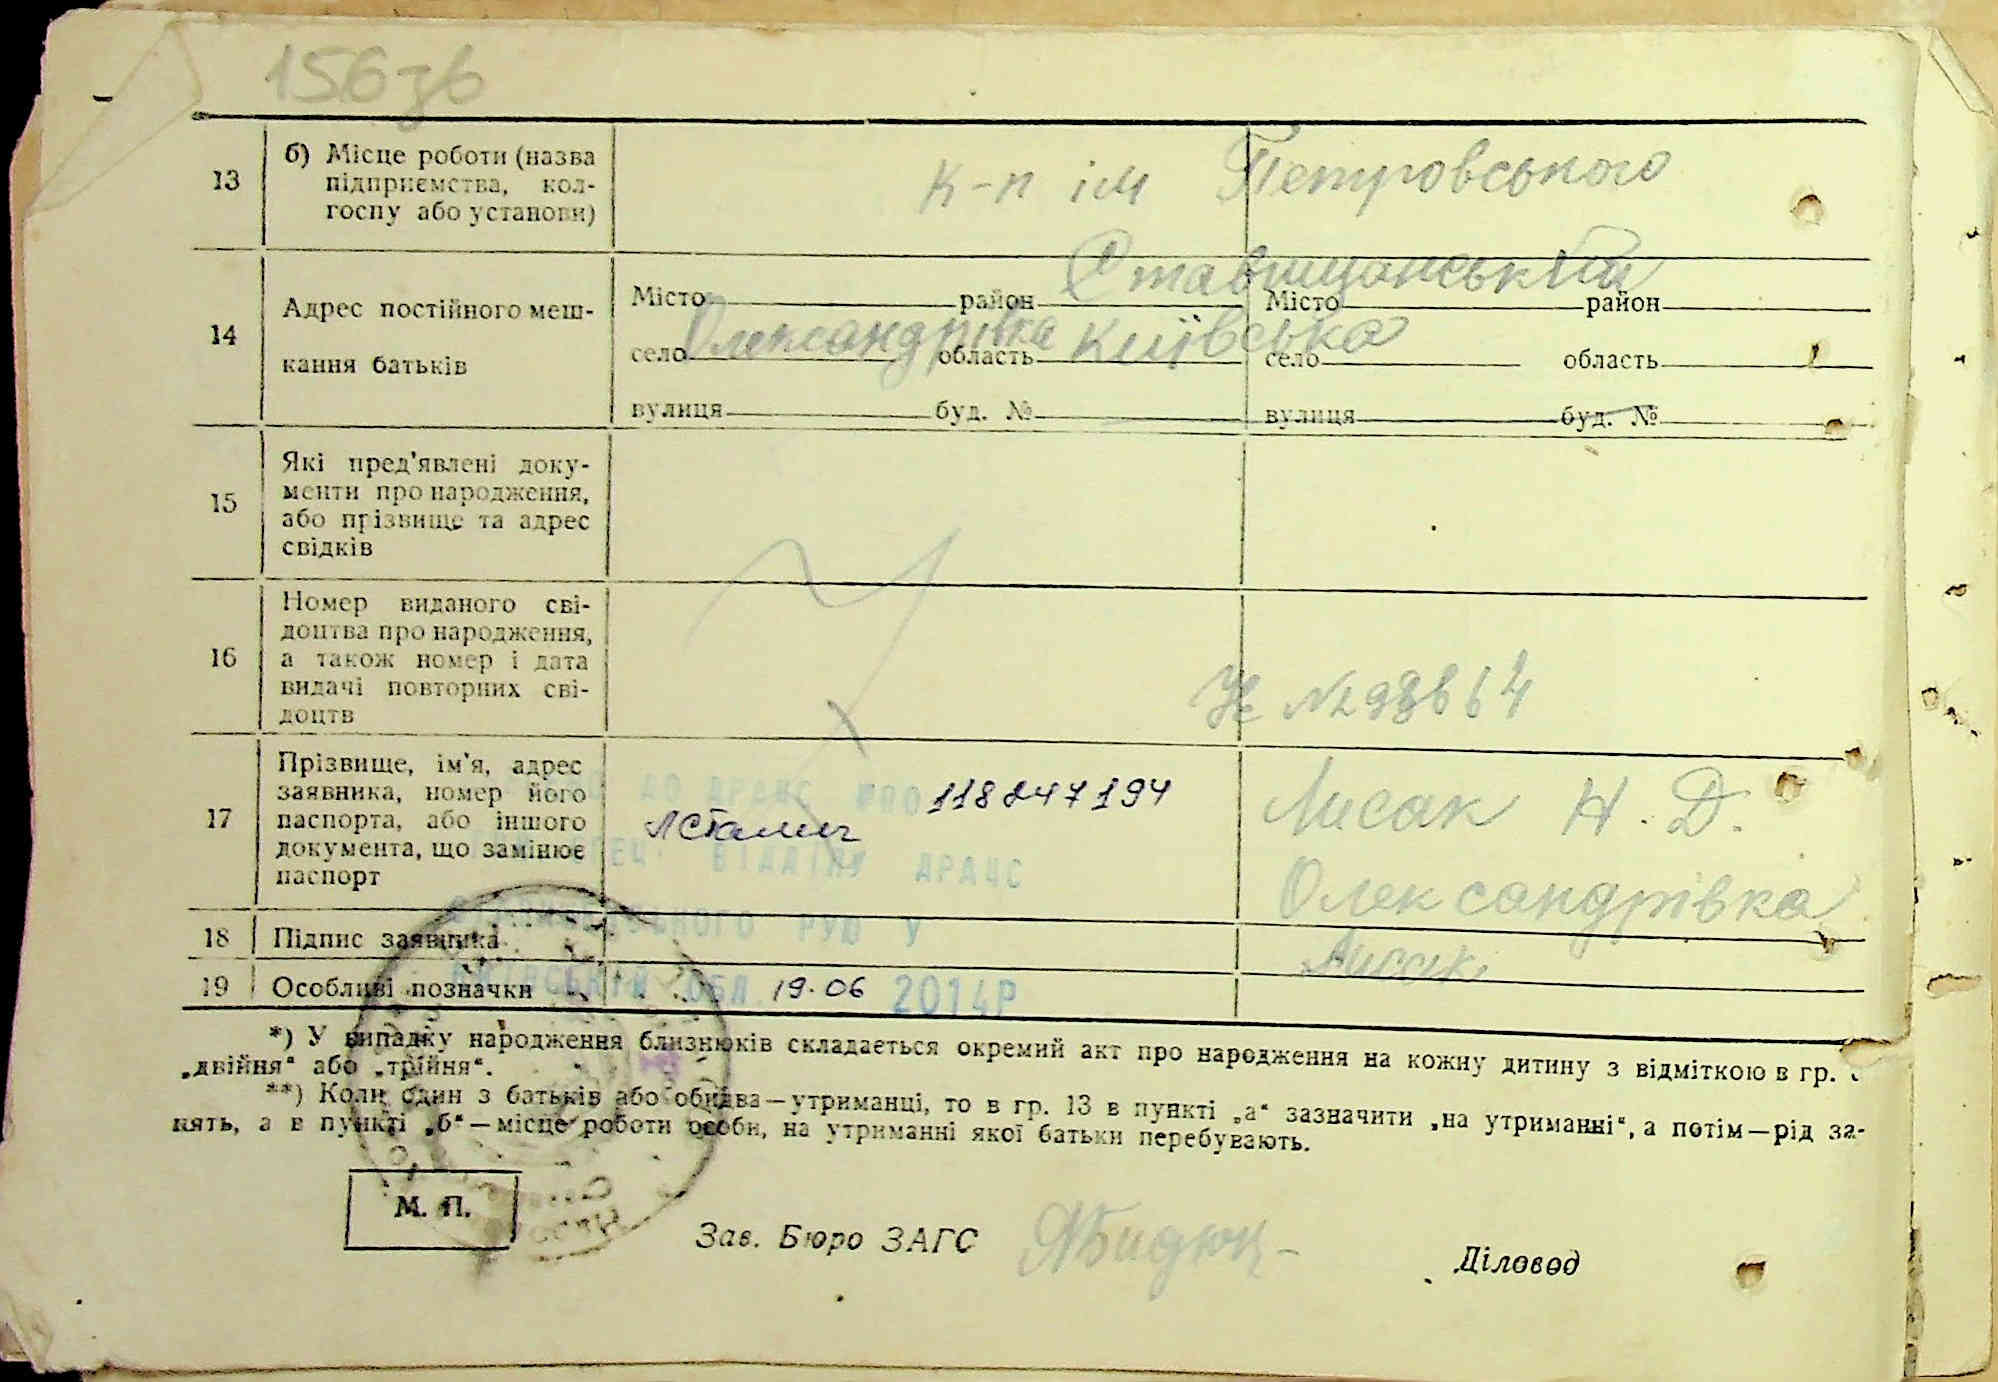 156 зв
13
б) Місце роботи (назва
підприємства, кол-
госпу або установи)
к-п ім Петровського
14
Адрес постійного меш-
кання батьків
Ставищанський
Місто район Місто район
Олександрівка Київська
село область село область
вулиця буд. № вулиця буд. №
15
Які пред'явлені доку-
менти про народження,
або прізвище та адрес
свідків
16
Номер виданого сві-
доцтва про народження,
а також номер і дата
видачі повторних сві-
доцтв
17
Прізвище, ім'я, адрес
заявника, номер його
паспорта, або іншого
документа, що замінює
паспорт
ДО ДРАЦС
118247194
ВІДДІЛУ ДРАЦС
РУЮ У
Лисак Н. Д.
Олександрівка
18 Підпис заявника
Лисак
19 Особливі позначки
ОБЛ. 19.06 2014Р
*) У випадку народження близнюків складається окремий акт про народження на кожну дитину з відміткою в гр.
„двійня“ або „трійня“.
**) Коли один з батьків або обидва—утриманці, то в гр. 13 в пункті „а“ зазначити „на утриманні“, а потім—рід за-
нять, а в пункті „б“—місце роботи особи, на утриманні якої батьки перебувають.
М. П.
Зав. Бюро ЗАГС
Діловод